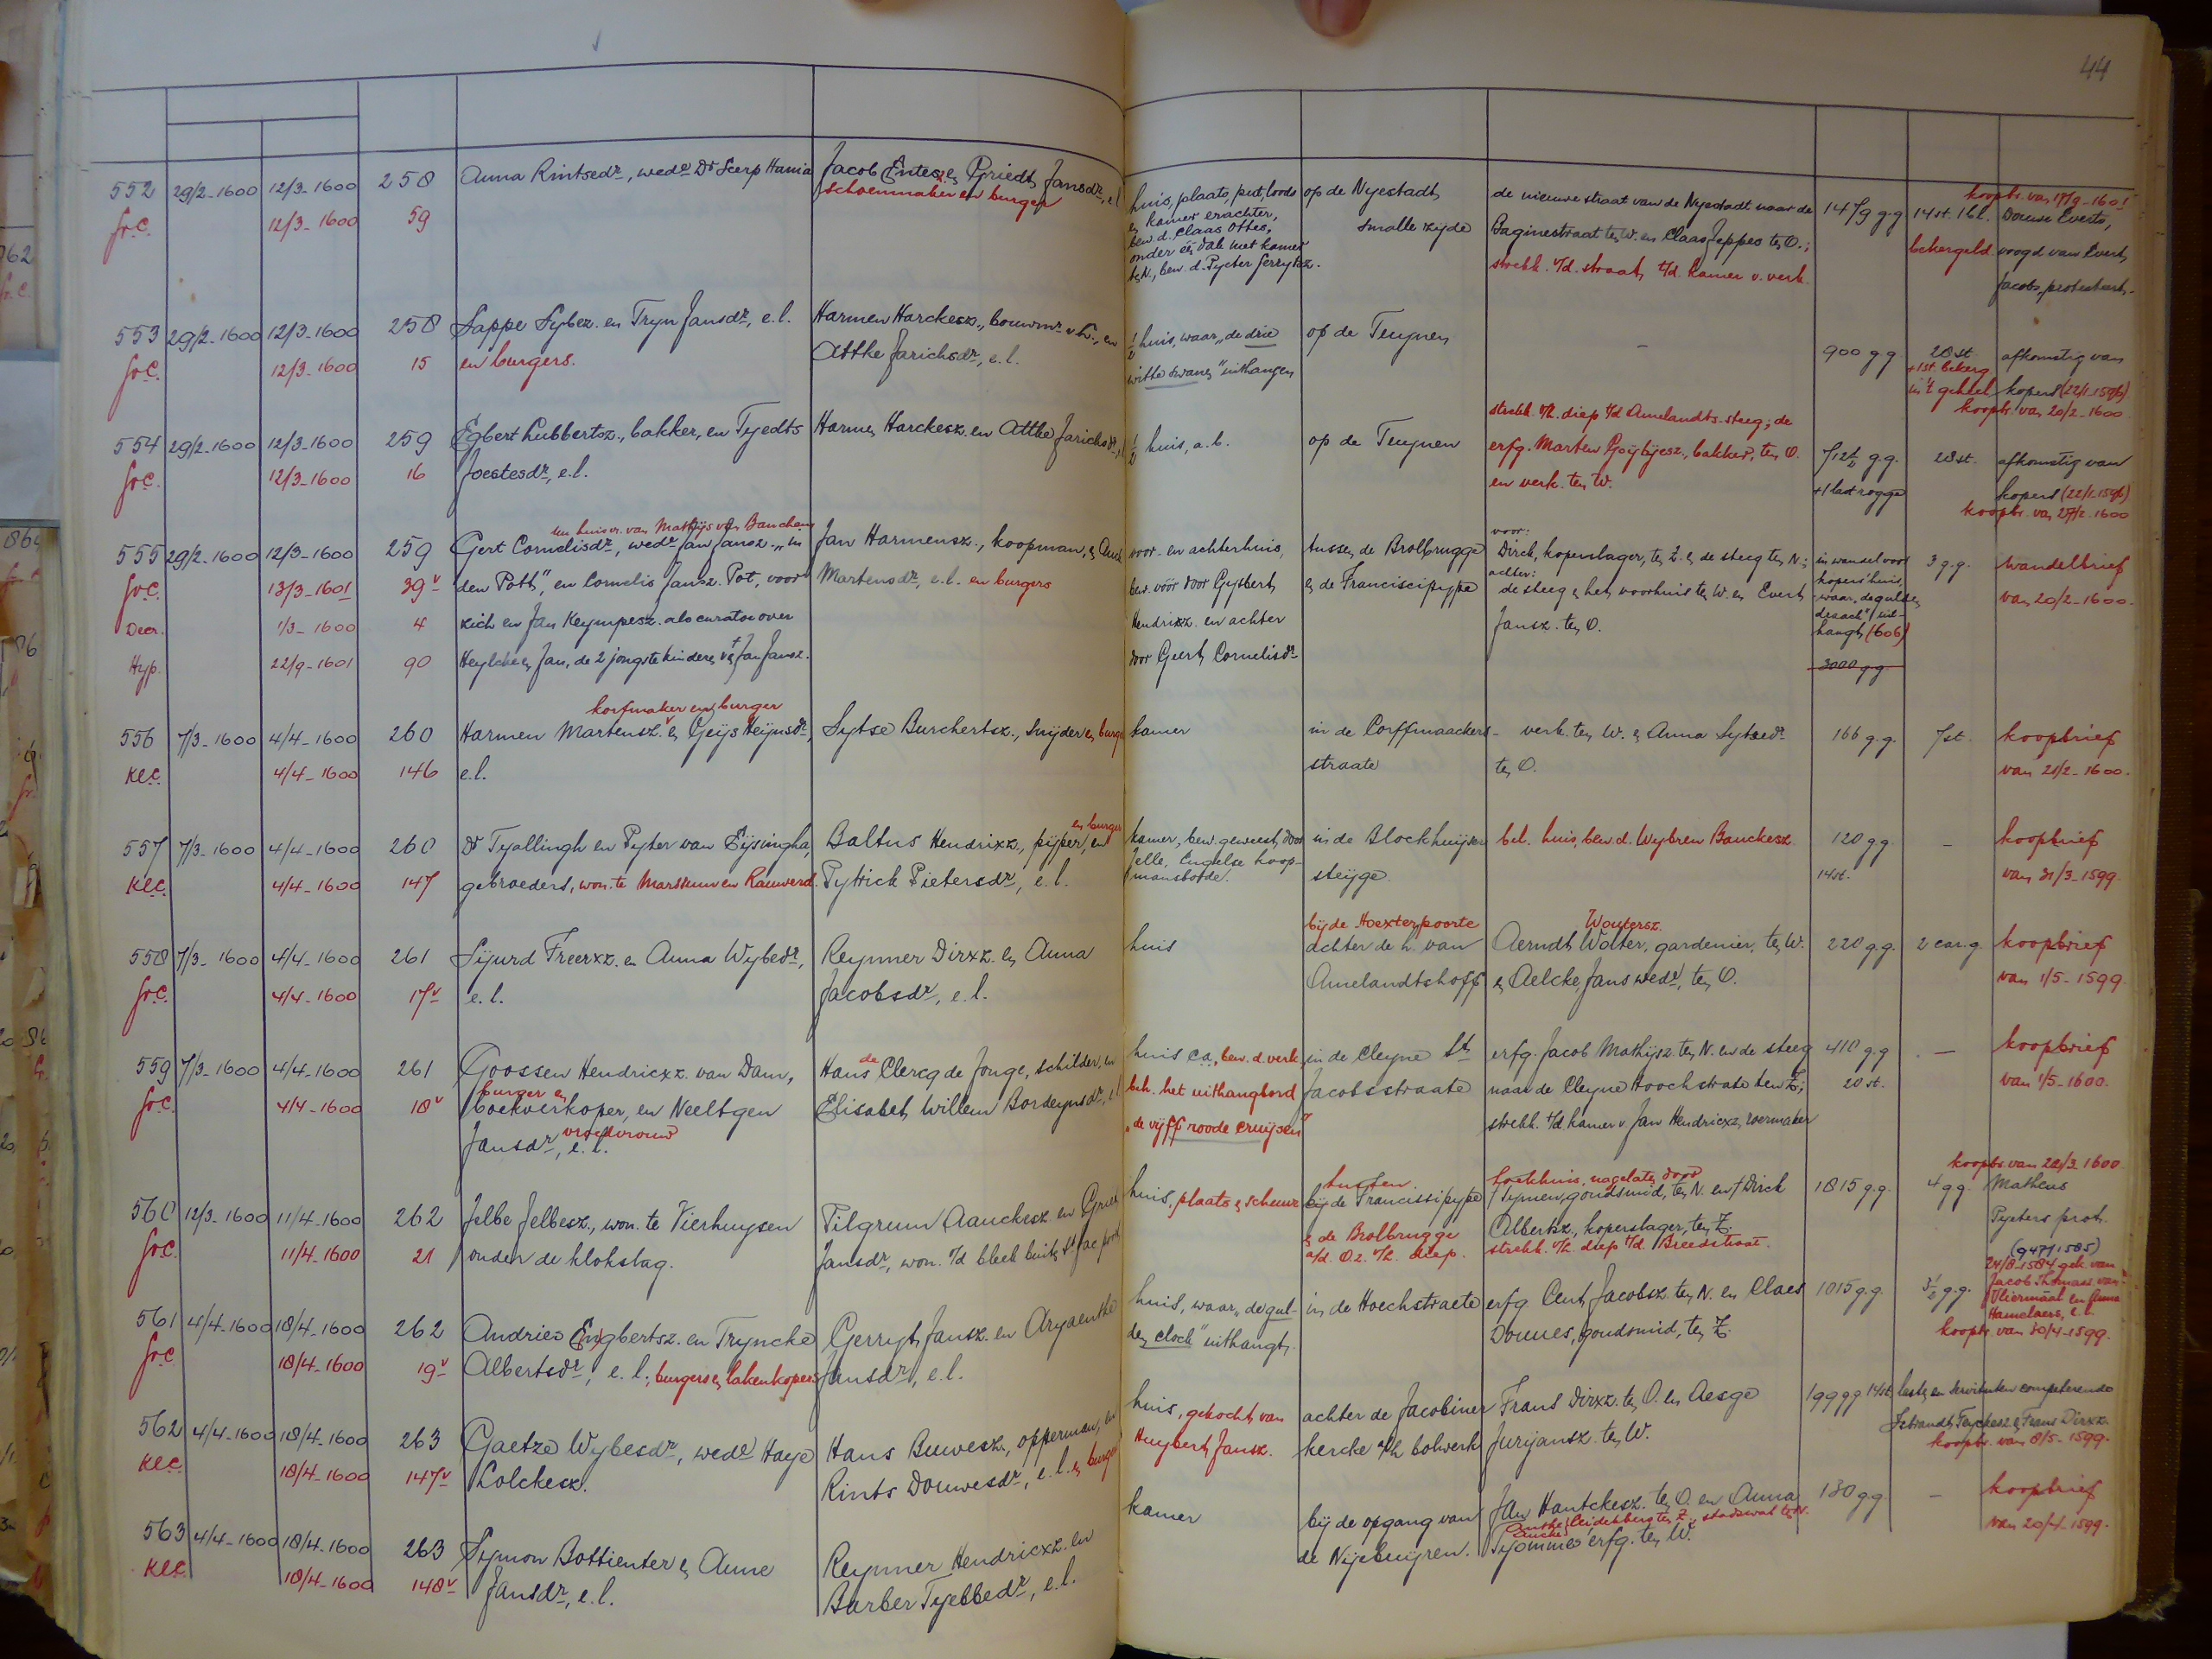 44
552 29/2-1600 12/3-1600 258 Anna Rintsedr, wede Dr Scerp Hania Jacob Entesz en Griedt Jansdr, e.l.
Gr.C. 12/3-1600 59 schoenmaker en burger
huis, plaats, put, loods op de Nyestadt de nieuwe straat van de Nyestadt naar de 1479 g.g. 14 st. 16 l. koopbr. van 17/9-1601
en kamer erachter, smalle zyde Baginestraat ten W. en Claas Jeppes ten O.; bekergeld. Douwe Everts,
bew. d. Claas Ottes, strekk. v/d. straat t/d. kamer v. verk. voogd van Evert
onder één dak met kamer Jacobs, protesteert.
ten N., bew. d. Pyeter Gerrytsz.
553 29/2-1600 12/3-1600 258 Sappe Sybez. en Tryn Jansdr, e.l. Harmen Harckesz., bouwmr v. L., en
Gr.C. 12/3-1600 15 en burgers. Attke Jarichsdr, e.l.
½ huis, waar "de drie op de Teuynen - 900 g.g. 28 st. afkomstig van
witte swanen" uithangen +1 st. bekerg. kopers (22/1-1596)
in 't geheel koopbr. van 20/2-1600
554 29/2-1600 12/3-1600 259 Egbert Lubbertsz., bakker, en Tyedts Harmen Harckesz. en Attke Jarichsdr, e.l.
Gr.C. 12/3-1600 16 Joestesdr, e.l.
strekk. v/h. diep t/d Amelandts-steeg; de
½ huis, a.b. op de Teuynen erfg. Marten Goytyesz., bakker, ten O. 712½ g.g. 28 st. afkomstig van
en verk. ten W. +1 last rogge kopers (22/1-1596)
koopbr. van 27/2-1600
een huisvr. van Mathijs van Bauchem
555 29/2-1600 12/3-1600 259 Gert Cornelisdr, wedr Jan Jansz. "in Jan Harmensz., koopman, en Auck
Gr.C. 13/3-1601 39v den Pott", en Cornelis Jansz. Pot, voor Martensdr, e.l. en burgers
Decr. 1/3-1600 4 zich en Jan Keympesz. als curator over
Hyp. 22/9-1601 90 Heylcke en Jan, de 2 jongste kinderen v. Jan Jansz.
voor- en achterhuis, tussen de Brolbrugge voor: Dirck, koperslager, ten Z. en de steeg ten N.; in wandel voor 3 g.g. wandelbrief
bew. vóór door Gysbert en de Franciscipyppe achter: de steeg en het voorhuis ten W. en Evert kopers' huis, van 20/2-1600.
Hendrixz. en achter Jansz. ten O. waar "de gulden
door Geert Cornelisdr draack" uithangt (606)
3000 g.g.
korfmaker en burger
556 7/3-1600 4/4-1600 260 Harmen Martensz. en Geijs Heijnsdr, Sytse Burchertsz., snijder en burger
Kl.C. 4/4-1600 146 e.l.
kamer in de Corffmaackers- verk. ten W. en Anna Sytsedr 166 g.g. 7 st. koopbrief
straate ten O. van 21/2-1600.
557 7/3-1600 4/4-1600 260 Dr Tjallingh en Pyter van Eijsingha, Baltus Hendrixz., pijper, en burger en
Kl.C. 4/4-1600 147 gebroeders, won. te Marssum en Rauwerd. Pyttrick Pietersdr, e.l.
kamer, bew. geweest door in de Blockhuijser bel. huis, bew. d. Wybren Bauckesz. 120 g.g. - koopbrief
Jelle, Engelse koop- steijge 14 st. van 31/3-1599
mansbode.
558 7/3-1600 4/4-1600 261 Sijurd Freerxz. en Anna Wybedr, Reynner Dirxz. en Anna
Gr.C. 4/4-1600 17v e.l. Jacobsdr, e.l.
bij de Hoexterpoorte Woutersz.
huis achter de h. van Aerndt Wolter, gardenier, ten W. 220 g.g. 2 car.g. koopbrief
Amelandtshoff en Aelcke Jans wedr, ten O. van 1/5-1599
559 7/3-1600 4/4-1600 261 Goossen Hendricxz. van Dam, Hans de Clercq de Jonge, schilder, en
Gr.C. 4/4-1600 18v burger en boekverkoper, en Neeltgen Elisabet Willem Bordeynsdr, e.l.
Jansdr, vroedvrouw e.l.
huis c.a., bew. d. verk. in de Cleyne St. erfg. Jacob Mathijsz. ten N. en de steeg 410 g.g. - koopbrief
beh. het uithangbord Jacobsstraate naar de Cleyne Hoochstrate ten Z.; 20 st. van 1/5-1600.
"de vijff roode cruijsen" strekk. t/d. kamer v. Jan Hendricxz, roermaker
560 12/3-1600 11/4-1600 262 Jelbe Jelbesz., won. te Vierhuysen Pilgrum Aauckesz. en Griet
Gr.C. 11/4-1600 21 onder de klokslag. Jansdr, won. o/d bleek buiten St Jac. poort
tussen hoekhuis, nagelaten door koopbr. van 22/3 1600
huis, plaats en scheur bij de Francissipype † Tymen, goudsmid, ten N. en † Dirck 1815 g.g. 4 g.g. Matheus
en de Brolbrugge Albertsz., koperslager, ten Z. Pyeters prot.
a/d. O.z. v/h. diep. strekk. v/h. diep t/d. Breedstraat.
561 4/4-1600 18/4-1600 262 Andries Engbertsz. en Tryncke Gerryt Jansz. en Aryaentke
Gr.C. 18/4-1600 19v Albertsdr, e.l., burgers en lakenkopers Jansdr, e.l.
huis, waar "de gul- in de Hoechstraete erfg. Cent Jacobsz. ten N. en Claes 1015 g.g. 3½ g.g. (947/1585)
den clock" uithangt. Douues, goudsmid, ten Z. 24/8-1584 gek. van
Jacob Thomasz van
Vliermaal en Anna
Hamelaers, e.l.
koopbr. van 30/4-1599.
562 4/4-1600 18/4-1600 263 Gaetze Wybesdr, wede Haye Hans Buwesz., opperman, en
Kl.C. 18/4-1600 147v Lolckesz. Rints Douwesdr, e.l. en burgers
huis, gekocht van achter de Jacobiner Frans Dirxz. ten O. en Aesge 199 gg 14 st. lasten en servituten competerende
Huybert Jansz. kercke a/h bolwerk Jurijansz. ten W. Sebrandt Feyckesz. en Frans Dirxz.
koopbr. van 8/5-1599.
563 4/4-1600 18/4-1600 263 Symon Bottienter en Anne Reynner Hendricxz. en
Kl.C. 18/4-1600 148v Jansdr, e.l. Barber Tyebbedr, e.l.
kamer bij de opgang van Jan Hantckesz. ten O. en Anna 130 g.g. - koopbrief
de Nijebuijren. Tyommes erfg. ten W. van 20/4-1599.